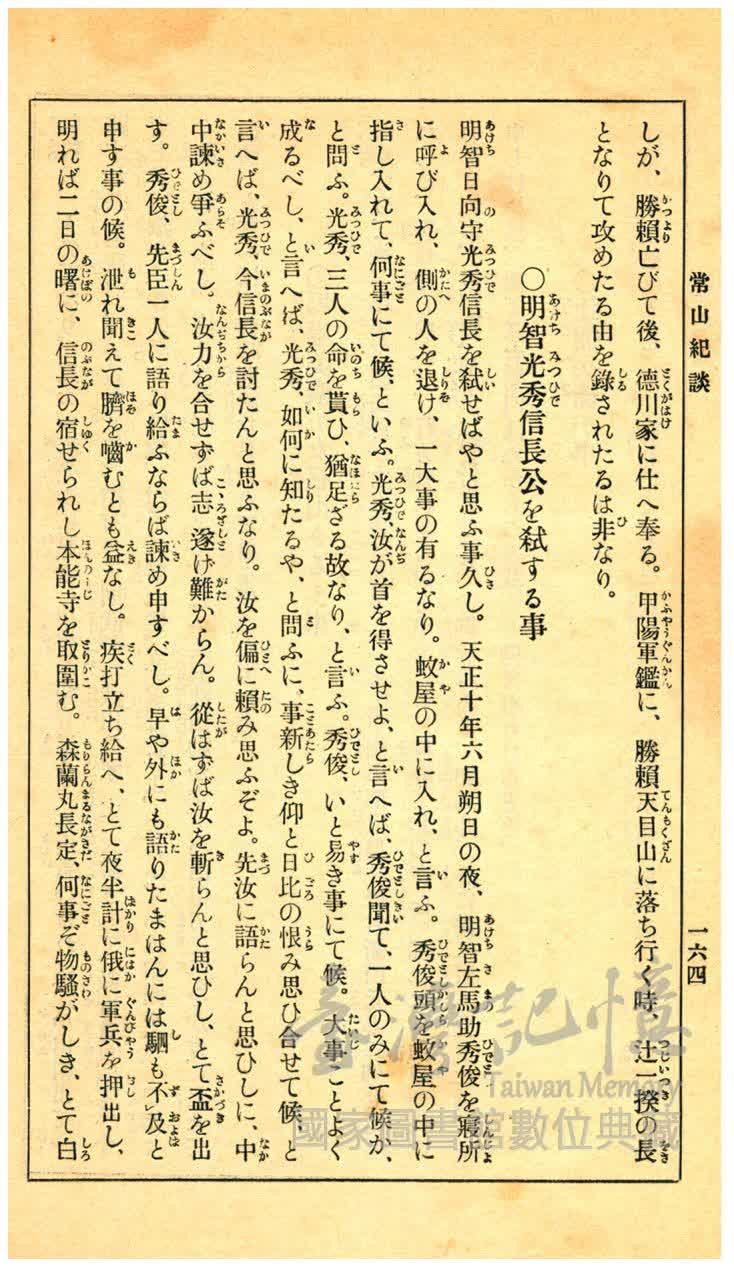 常山紀談
一六四
しが、勝頼亡びて後、德川家に仕へ奉る。甲陽軍鑑に、勝頼天目山に落ち行く時、辻一揆の長
となりて攻めたる由を錄されたるは非なり。
〇明智光秀信長公を弑する事
明智日向守光秀信長を弑せばやと思ふ事久し。天正十年六月朔日の夜、明智左馬助秀俊を寢所
に呼び入れ、側の人を退け、一大事の有るなり。蚊屋の中に入れ、と言ふ。秀俊頭を蚊屋の中に
指し入れて、何事にて候、といふ。光秀、汝が首を得させよ、と言へば、秀俊聞て、一人のみにて候か、
と問ふ。光秀、三人の命を貰ひ、猶足ざる故なり、と言ふ。秀俊、いと易き事にて候。大事ことよく
成るべし、と言へば、光秀、如何に知たるや、と問ふに、事新しき仰と日比の恨み思ひ合せて候、と
言へば、光秀、今信長を討たんと思ふなり。汝を偏に頼み思ふぞよ。先汝に語らんと思ひしに、中
中諫め爭ふべし。汝力を合せずば志遂げ難からん。從はずば汝を斬らんと思ひし、とて盃を出
す。秀俊、先臣一人に語り給ふならば諫め申すべし。早や外にも語りたまはんには駟も不及と
申す事の候。泄れ聞えて臍を嚙むとも益なし。疾打立ち給へ、とて夜半計に俄に軍兵を押出し、
明れば二日の曙に、信長の宿せられし本能寺を取圍む。森蘭丸長定、何事ぞ物騷がしき、とて白
臺灣記憶
Taiwan Memory
國家圖書館數位典藏